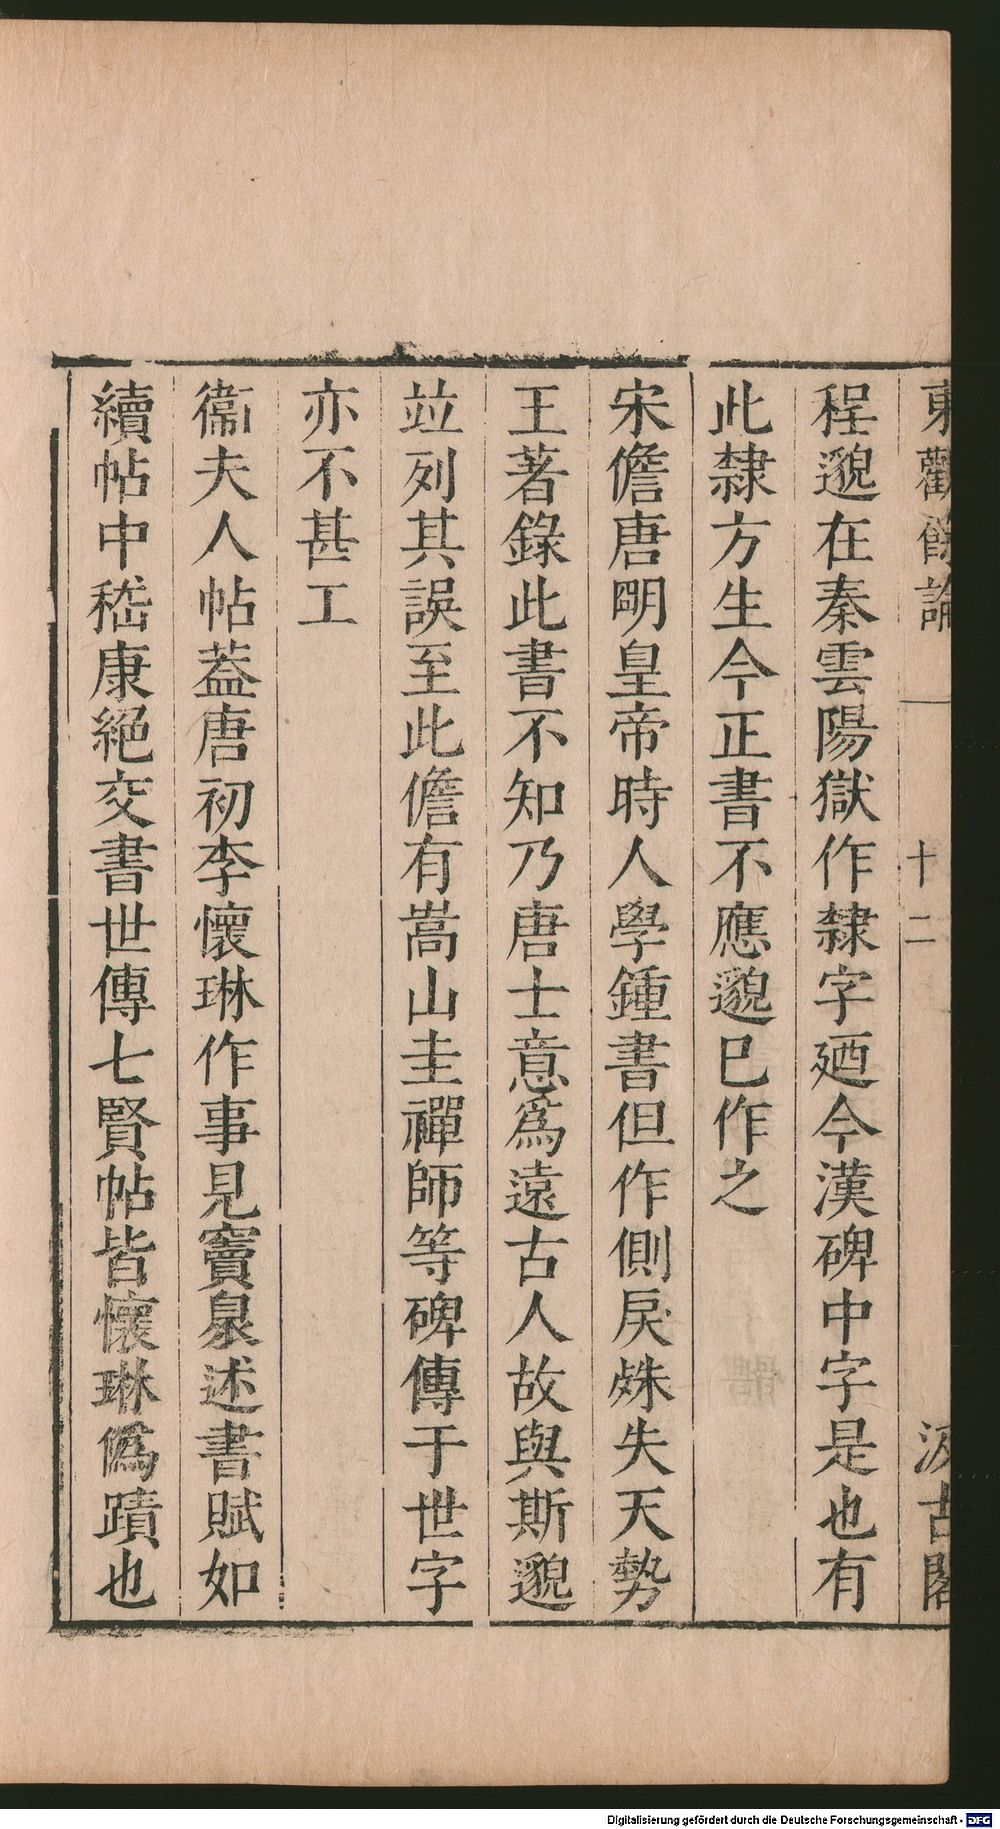 東觀餘論 十二 汲古閣
程邈在秦雲陽獄作隸字廼今漢碑中字是也有
此隸方生今正書不應邈巳作之
宋儋唐明皇帝時人學鍾書但作側戾殊失天勢
王著錄此書不知乃唐士意爲遠古人故與斯邈
竝列其誤至此儋有嵩山圭禪師等碑傳于世字
亦不甚工
衞夫人帖葢唐初李懷琳作事見竇臮述書賦如
續帖中嵇康絕交書世傳七賢帖皆懷琳僞蹟也
Digitalisierung gefördert durch die Deutsche Forschungsgemeinschaft - DFG